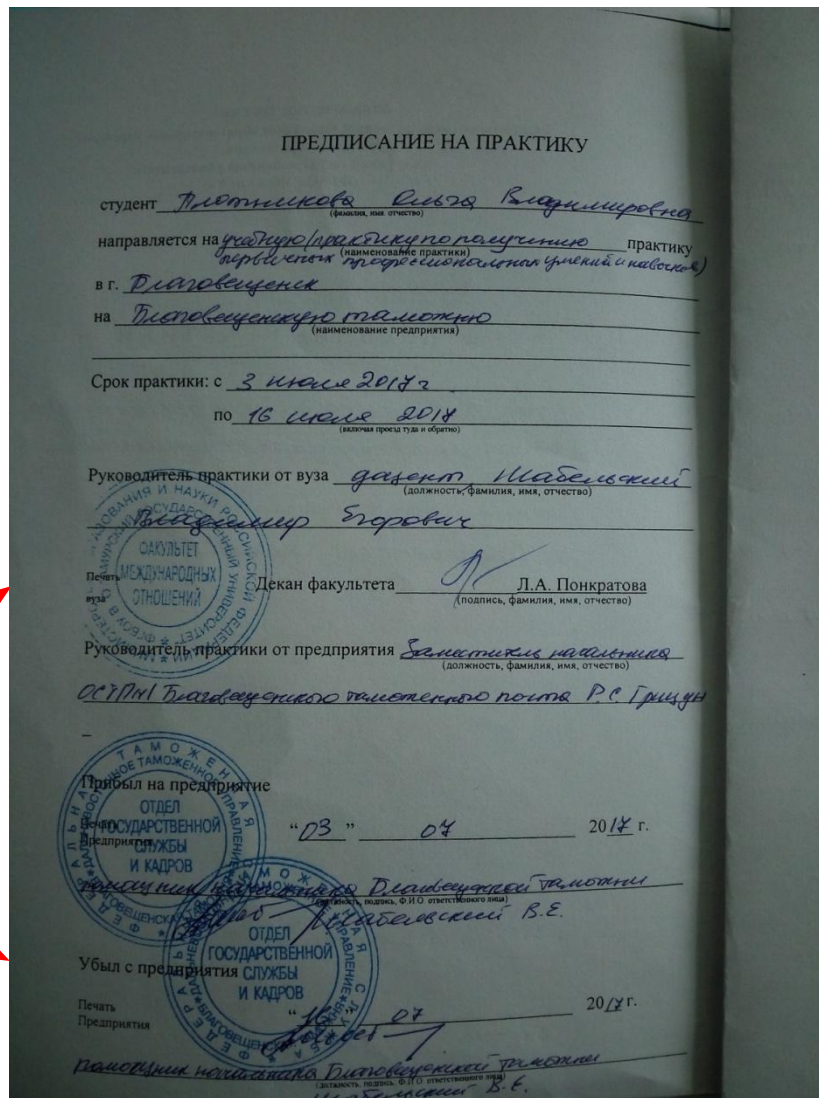 ПРЕДПИСАНИЕ НА ПРАКТИКУ
студент Плотникова Ольга Владимировна
(фамилия, имя, отчество)
направляется на учебную (практику по получению практику
(наименование практики)
первичных профессиональных умений и навыков)
в г. Благовещенск
на Благовещенскую таможню
(наименование предприятия)
Срок практики: с 3 июля 2017 г
по 16 июля 2017
(включая проезд туда и обратно)
Руководитель практики от вуза доцент Шабельский
(должность, фамилия, имя, отчество)
Владимир Егорович
ФАКУЛЬТЕТ
МЕЖДУНАРОДНЫХ
ОТНОШЕНИЙ
Печать
вуза
Декан факультета Л.А. Понкратова
(подпись, фамилия, имя, отчество)
Руководитель практики от предприятия Заместитель начальника
(должность, фамилия, имя, отчество)
ОСТП№1 Благовещенского таможенного поста Р.С. Грицун
Прибыл на предприятие
ОТДЕЛ
ГОСУДАРСТВЕННОЙ
СЛУЖБЫ
И КАДРОВ
Печать
Предприятия
“03” 07 2017 г.
помощник начальника Благовещенской таможни
(должность, подпись, Ф.И.О. ответственного лица)
Шабельский В.Е.
Убыл с предприятия
ОТДЕЛ
ГОСУДАРСТВЕННОЙ
СЛУЖБЫ
И КАДРОВ
Печать
Предприятия
“16” 07 2017 г.
помощник начальника Благовещенской таможни
(должность, подпись, Ф.И.О. ответственного лица)
Шабельский В.Е.